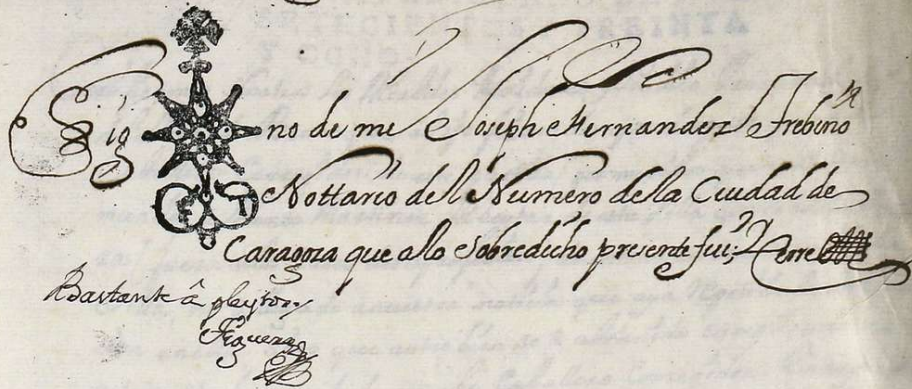 Sig no de mi Joseph Hernandez Trebiño
Nottario del Numero dela Ciudad de
Caragoza que alo Sobredicho presente fui; et Cerre
Bastante â pleytos
Figueras